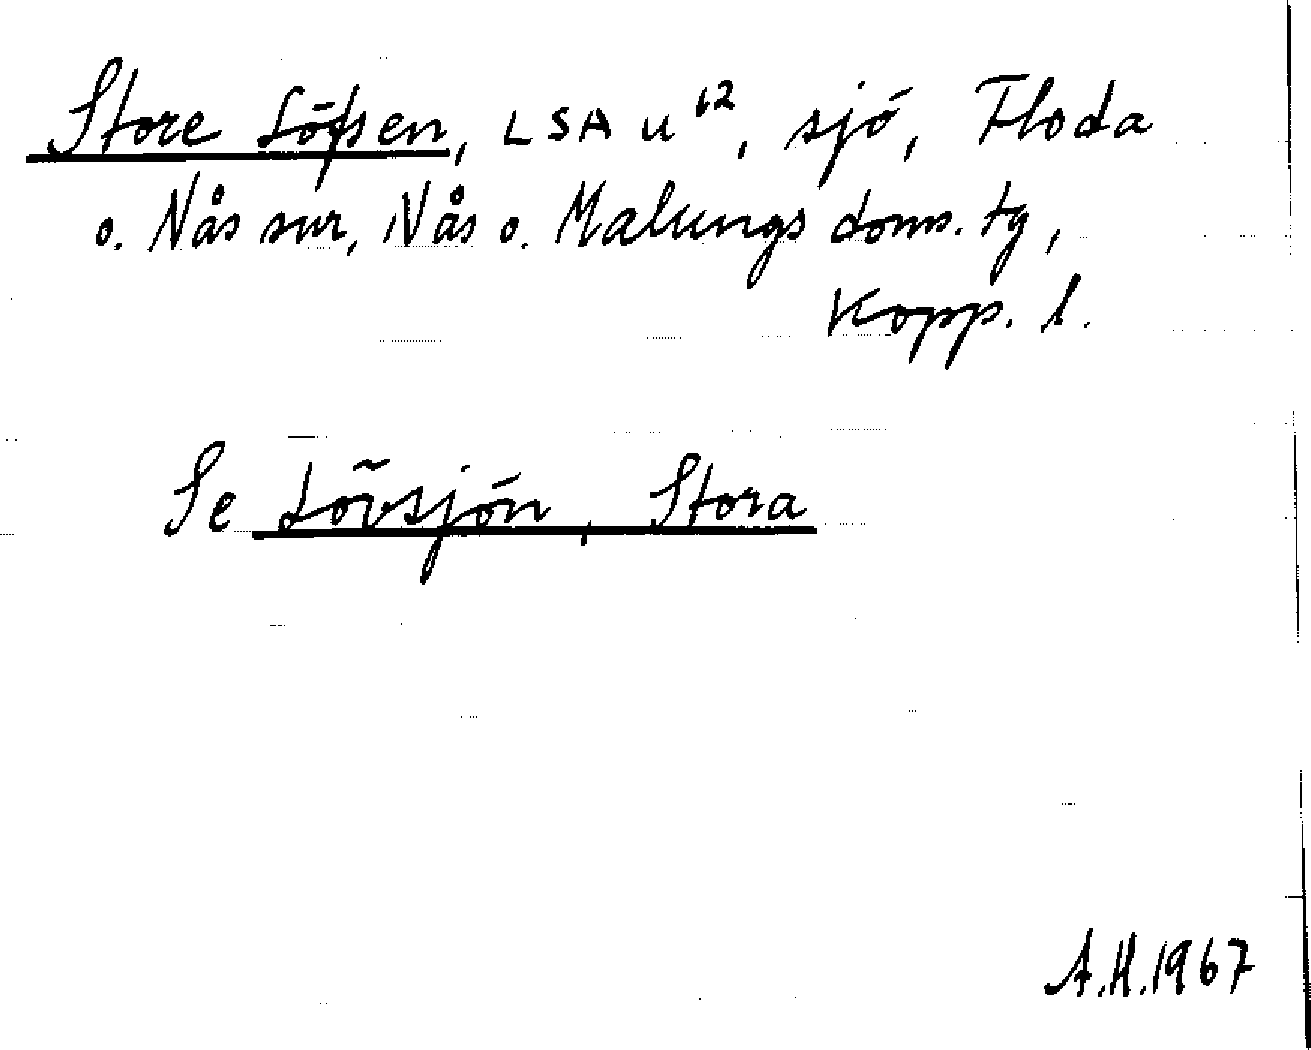 Store Löfsen, LSA u¹², sjö, Floda
o. Nås snr, Nås o. Malungs doms. tg,
Kopp. l.
Se Lövsjön, Stora
A.H. 1967